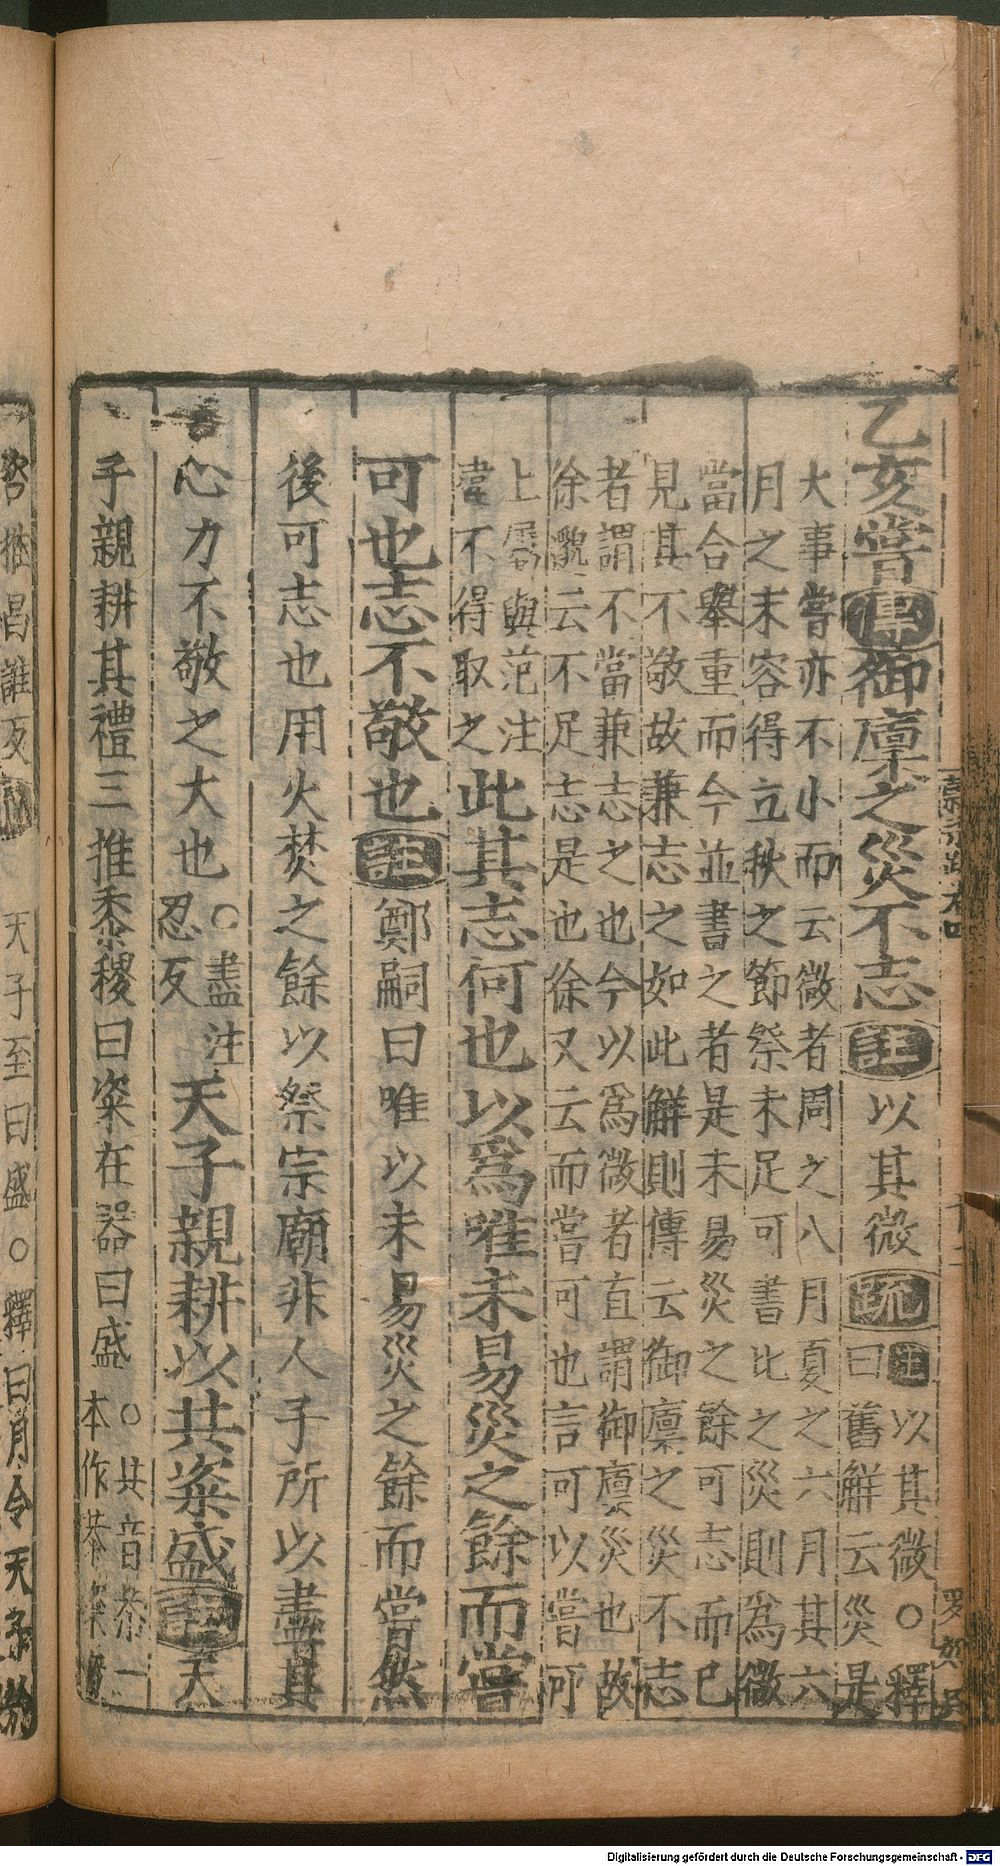 乙亥嘗傳御廩之災不志註以其微疏註以其微○釋
曰舊解云災是
大事嘗亦不小而云微者周之八月夏之六月其六
月之末容得立秋之節祭未足可書比之災則為微
當合舉重而今並書之者是未易災之餘可志而已
見其不敬故兼志之如此解則傳云御廩之災不志
者謂不當兼志之也今以爲微者直謂御廩災也故
徐邈云不足志是也徐又云而嘗可也言可以嘗可
上屬與范注
違不得取之此其志何也以爲唯未易災之餘而嘗
可也志不敬也註鄭嗣曰唯以未易災之餘而嘗然
後可志也用火焚之餘以祭宗廟非人子所以盡其
心力不敬之大也○盡注
忍反天子親耕以共粢盛註天
子親耕其禮三推黍稷曰粢在器曰盛○共音恭一
本作恭粢音
咨推昌誰反疏天子至曰盛○釋曰月令天子
Digitalisierung gefördert durch die Deutsche Forschungsgemeinschaft - DFG